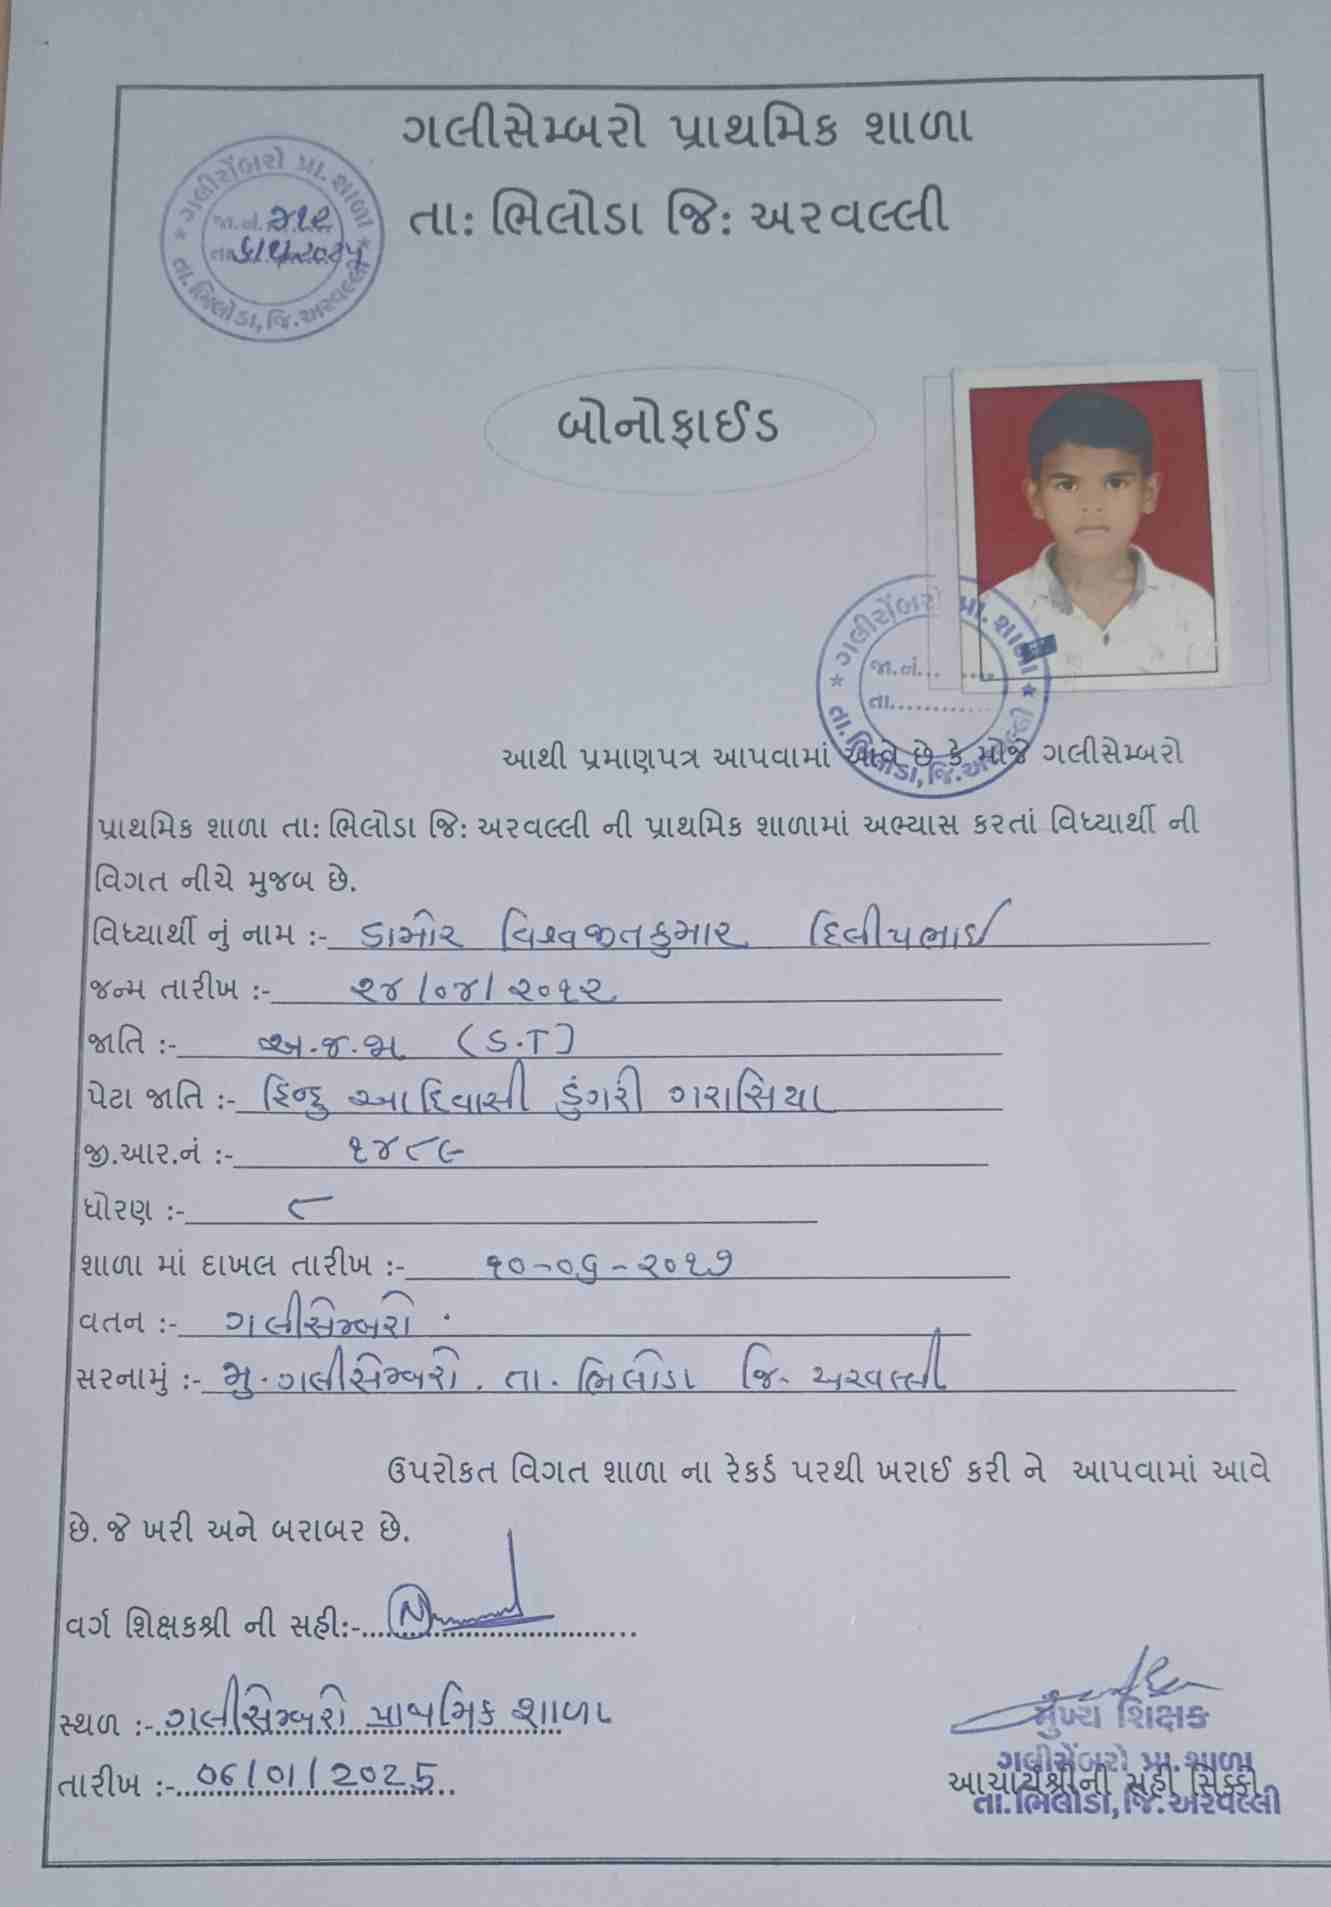 ગલીસેમ્બરો પ્રાથમિક શાળા
તા: ભિલોડા જિ: અરવલ્લી
* ગલીસેંબરો પ્રા. શાળા *
જા.નં.
તા.
તા. ભિલોડા, જિ. અરવલ્લી
બોનોફાઈડ
* ગલીસેંબરો પ્રા. શાળા *
જા.નં...
તા............
તા. ભિલોડા, જિ. અરવલ્લી
આથી પ્રમાણપત્ર આપવામાં આવે છે કે મોજે ગલીસેમ્બરો
પ્રાથમિક શાળા તા: ભિલોડા જિ: અરવલ્લી ની પ્રાથમિક શાળામાં અભ્યાસ કરતાં વિધ્યાર્થી ની
વિગત નીચે મુજબ છે.
વિધ્યાર્થી નું નામ :- ડામોર વિશ્વજીતકુમાર દિલીપભાઈ
જન્મ તારીખ :- ૨૪/૦૪/૨૦૧૨
જાતિ :- અ.જ.જા (S.T)
પેટા જાતિ :- હિન્દુ આદિવાસી ડુંગરી ગરાસિયા
જી.આર.નં :- ૧૪૮૯
ધોરણ :- ૮
શાળા માં દાખલ તારીખ :- ૧૦-૦૬-૨૦૧૭
વતન :- ગલીસેમ્બરો
સરનામું :- મુ. ગલીસેમ્બરો. તા. ભિલોડા જિ. અરવલ્લી
ઉપરોકત વિગત શાળા ના રેકર્ડ પરથી ખરાઈ કરી ને આપવામાં આવે
છે. જે ખરી અને બરાબર છે.
વર્ગ શિક્ષકશ્રી ની સહી:-
સ્થળ :- ગલીસેમ્બરો પ્રાથમિક શાળા
તારીખ :- 06/01/2025
મુખ્ય શિક્ષક
ગલીસેંબરો પ્રા. શાળા
આચાર્યશ્રીની સહી સિક્કો
તા. ભિલોડા, જિ. અરવલ્લી